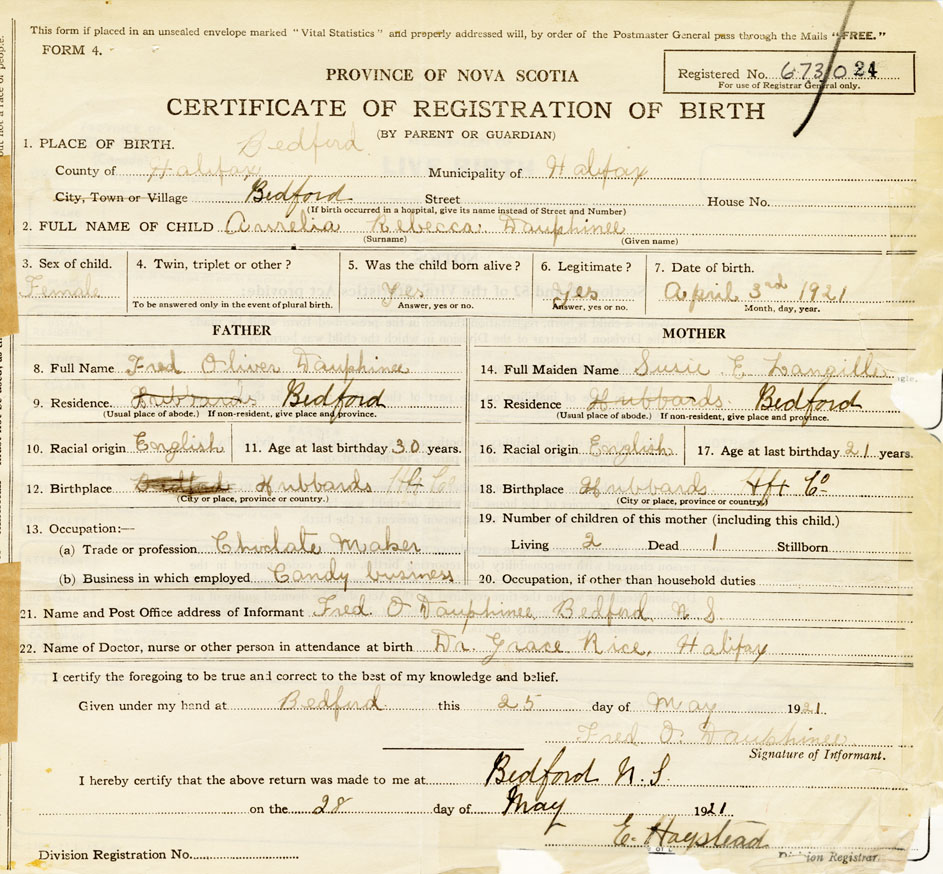 This form if placed in an unsealed envelope marked "Vital Statistics" and properly addressed will, by order of the Postmaster General pass through the Mails "FREE."
FORM 4.
Registered No. 24
For use of Registrar General only.
PROVINCE OF NOVA SCOTIA
CERTIFICATE OF REGISTRATION OF BIRTH
(BY PARENT OR GUARDIAN)
1. PLACE OF BIRTH. Bedford
County of Halifax Municipality of Halifax
City, Town or Village Bedford Street House No.
(If birth occurred in a hospital, give its name instead of Street and Number)
2. FULL NAME OF CHILD Aurelia Rebecca Dauphinee
(Surname) (Given name)
3. Sex of child. 4. Twin, triplet or other? 5. Was the child born alive? 6. Legitimate? 7. Date of birth.
Female Yes Yes April 3rd 1921
To be answered only in the event of plural birth. Answer, yes or no. Answer, yes or no. Month, day, year.
FATHER MOTHER
8. Full Name Fred Oliver Dauphinee 14. Full Maiden Name Susie E Langille
9. Residence. Hubbards Bedford 15. Residence Hubbards Bedford
(Usual place of abode.) If non-resident, give place and province. (Usual place of abode.) If non-resident, give place and province.
10. Racial origin English 11. Age at last birthday 30 years. 16. Racial origin English 17. Age at last birthday 21 years.
12. Birthplace Bedford Hubbards Hfx Co 18. Birthplace Hubbards Hfx Co
(City or place, province or country.) (City or place, province or country,)
13. Occupation:— 19. Number of children of this mother (including this child.)
(a) Trade or profession Choclate Maker Living 2 Dead 1 Stillborn
(b) Business in which employed Candy business 20. Occupation, if other than household duties
21. Name and Post Office address of Informant Fred. O Dauphinee Bedford N S
22. Name of Doctor, nurse or other person in attendance at birth Dr. Grace Rice, Halifax
I certify the foregoing to be true and correct to the best of my knowledge and belief.
Given under my hand at Bedford this 25 day of May 1921
Fred O. Dauphinee
Signature of Informant.
I hereby certify that the above return was made to me at Bedford N.S.
on the 28 day of May 1921
E. Haystead
Division Registration No. Division Registrar